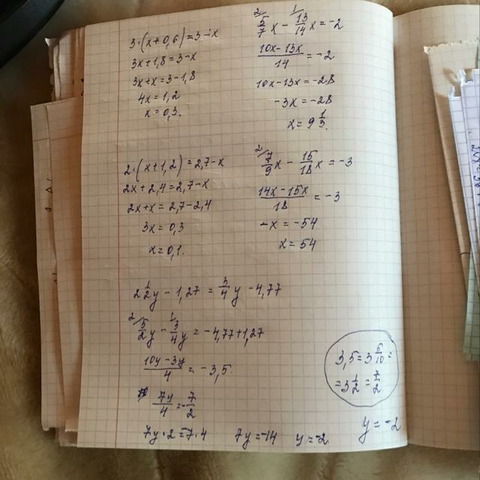 3·(x+0,6)=3-x
3x+1,8=3-x
3x+x=3-1,8
4x=1,2
x=0,3.
2/ 5/7 x - 1/ 13/14 x = -2
(10x-13x)/14 = -2
10x-13x=-28
-3x=-28
x=9 1/3.
2·(x+1,2)=2,7-x
2x+2,4=2,7-x
2x+x=2,7-2,4
3x=0,3
x=0,1.
2/ 7/9 x - 15/18 x = -3
(14x-15x)/18 = -3
-x=-54
x=54
2 1/2 y - 1,27 = 3/4 y - 4,77
2/ 5/2 y - 1/ 3/4 y = -4,77+1,27
(10y-3y)/4 = -3,5
7y/4 = -7/2
7y·2=-7·4 7y=-14 y=-2
3,5=3 5/10=
=3 1/2=7/2
y=-2